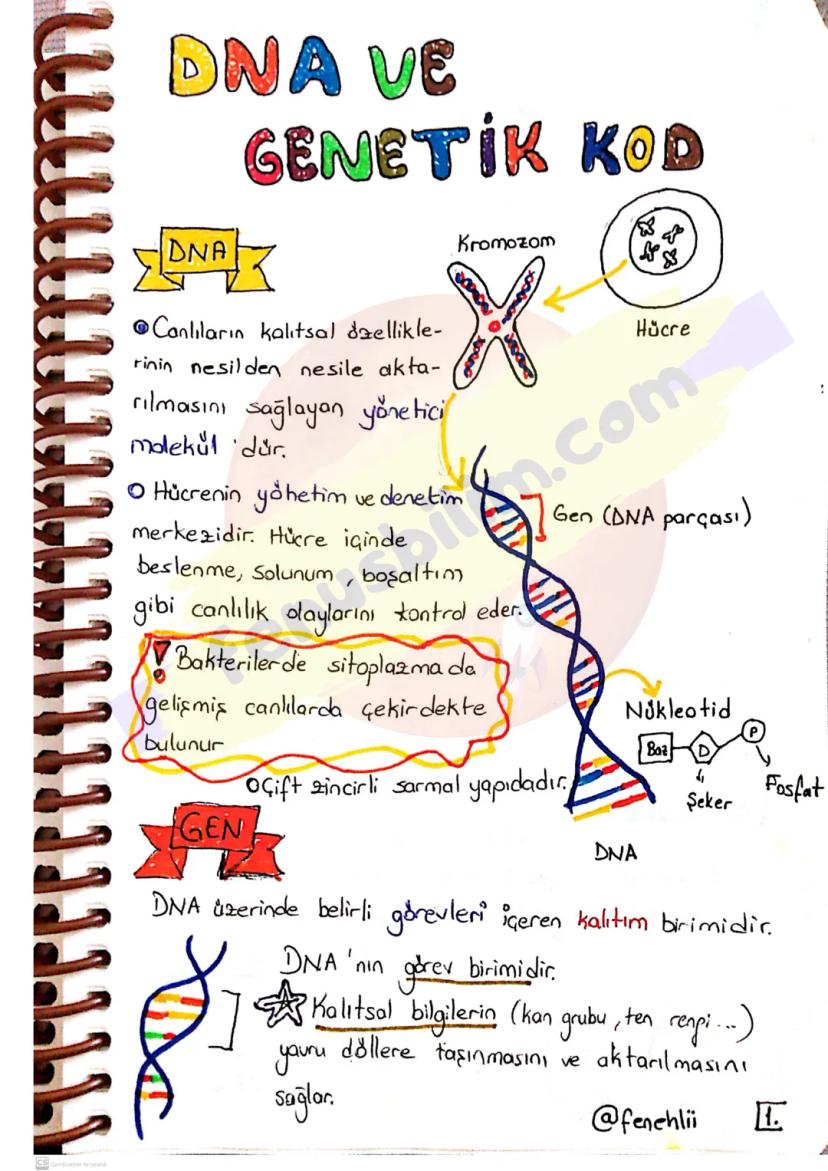 DNA VE
GENETİK KOD
DNA
Kromozom
Hücre
Canlıların kalıtsal özellikle-
rinin nesilden nesile akta-
rılmasını sağlayan yönetici
molekül 'dür.
Hücrenin yönetim ve denetim
merkezidir. Hücre içinde
beslenme, solunum, boşaltım
gibi canlılık olaylarını kontrol eder.
Gen (DNA parçası)
! Bakterilerde sitoplazmada
gelişmiş canlılarda çekirdekte
bulunur
Nükleotid
Baz D P
Şeker
Fosfat
Çift zincirli sarmal yapıdadır.
DNA
GEN
DNA üzerinde belirli görevleri içeren kalıtım birimidir.
DNA'nın görev birimidir.
Kalıtsal bilgilerin (kan grubu, ten rengi...)
yavru döllere taşınmasını ve aktarılmasını
sağlar.
@fenehlii
1.
fenusbilim.com
CS